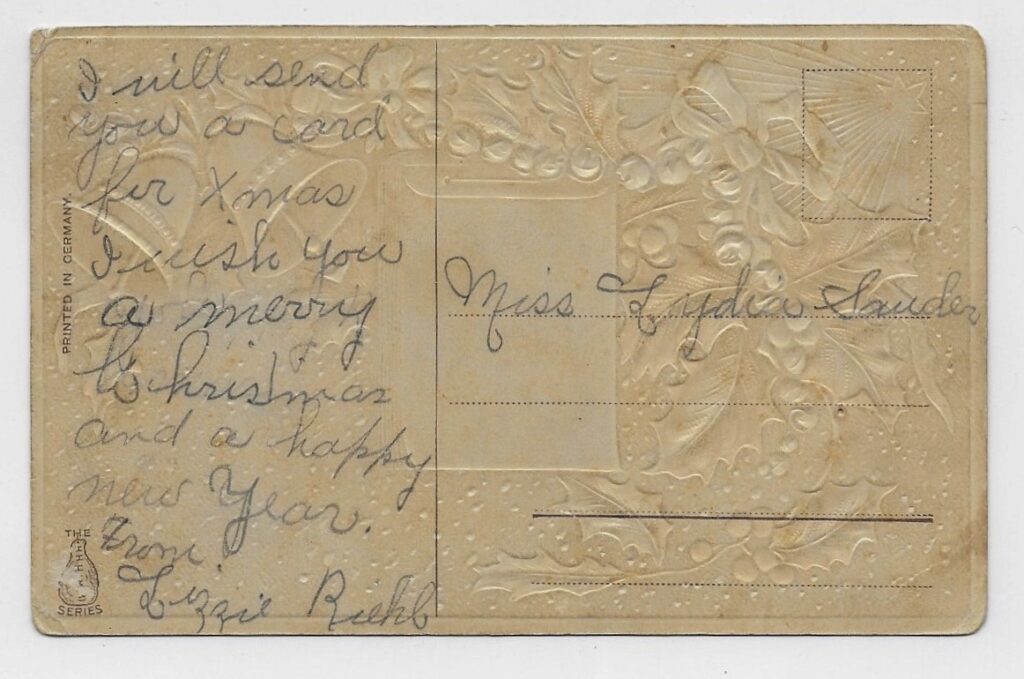 I will send
you a card
for Xmas
I wish you
a merry
Christmas
and a happy
new Year.
From
Lizzie Riehl
Miss Lydia Sauder
PRINTED IN GERMANY.
THE
SERIES